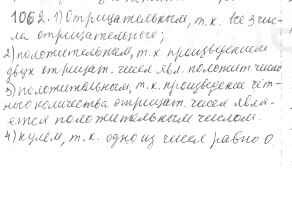 1062. 1) Отрицательным, т.к. все 3 чис-
ла отрицательные;
2) положительным, т.к. произведением
двух отрицат. чисел явл. положит. число
3) положительным, т.к. произведение чёт-
ные количества отрицат. чисел явля-
ется положительным числом.
4) нулём, т.к. одно из чисел равно 0.